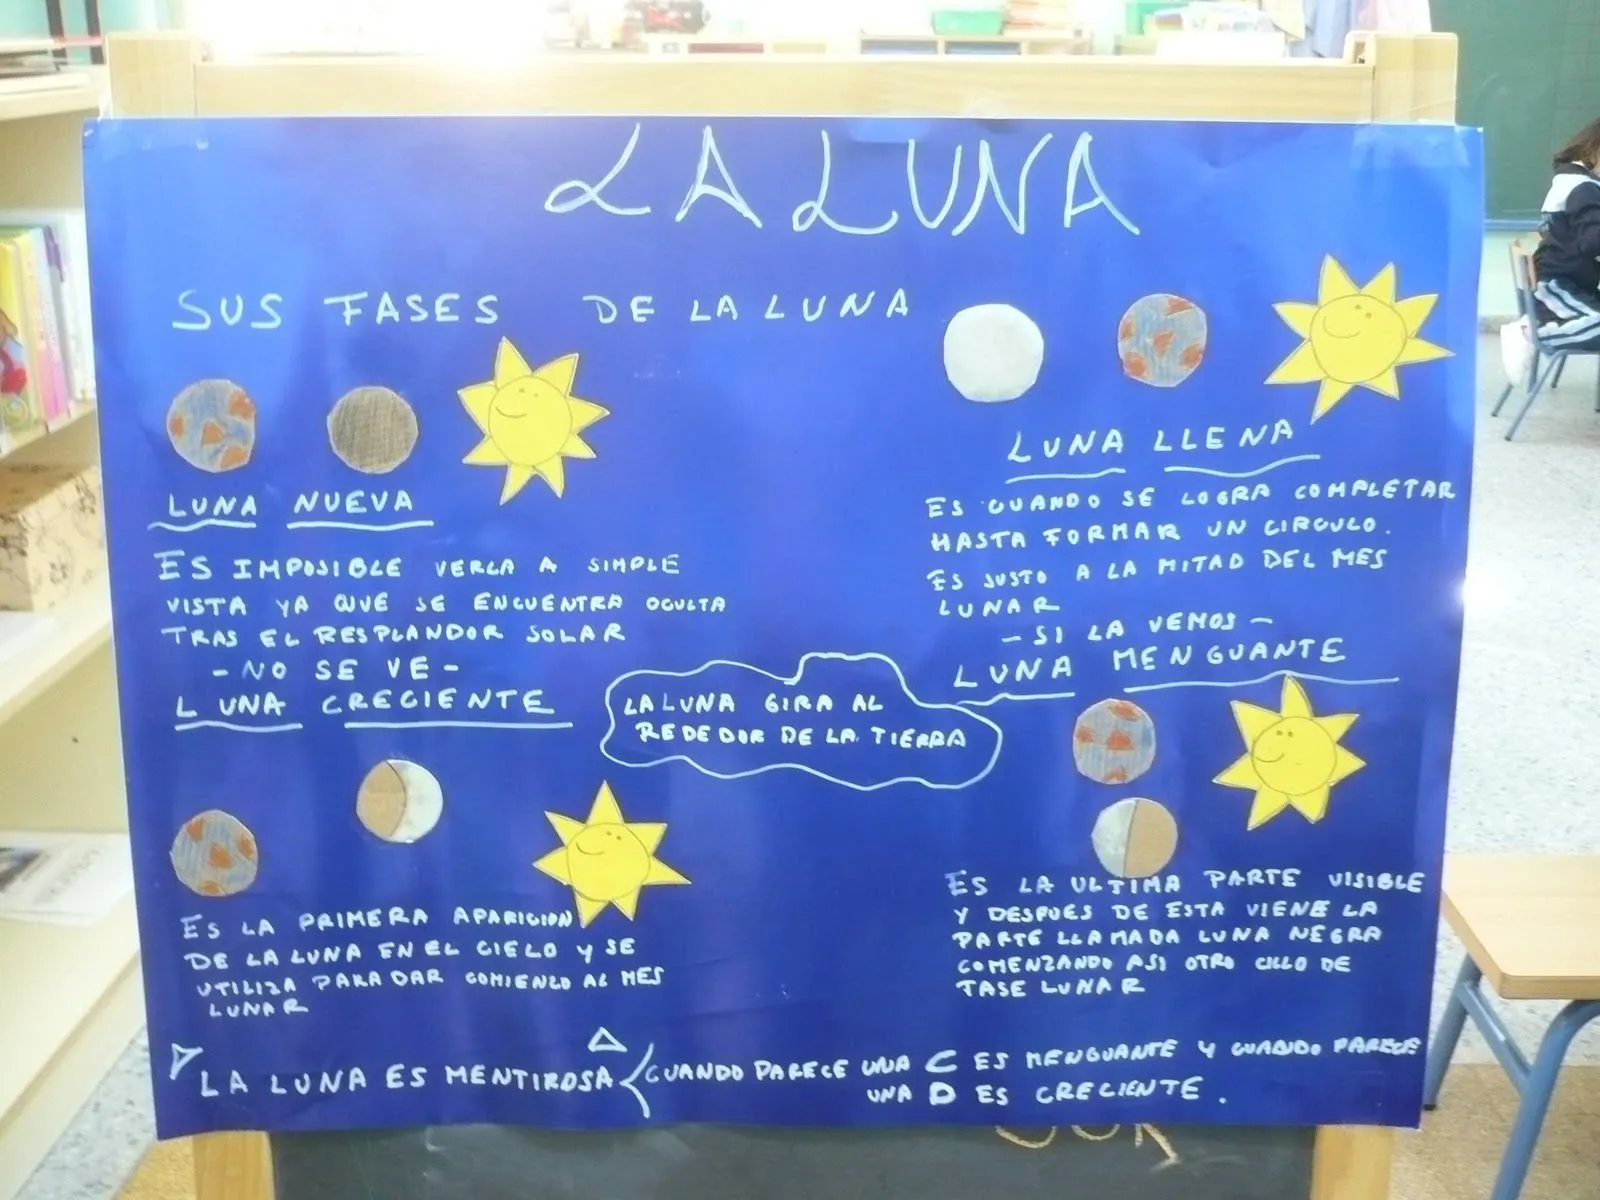 LA LUNA
SUS FASES DE LA LUNA
LUNA NUEVA
ES IMPOSIBLE VERLA A SIMPLE
VISTA YA QUE SE ENCUENTRA OCULTA
TRAS EL RESPLANDOR SOLAR
- NO SE VE -
LUNA CRECIENTE
ES LA PRIMERA APARICION
DE LA LUNA EN EL CIELO Y SE
UTILIZA PARA DAR COMIENZO AL MES
LUNAR
LA LUNA GIRA AL
REDEDOR DE LA TIERRA
LUNA LLENA
ES CUANDO SE LOGRA COMPLETAR
HASTA FORMAR UN CIRCULO.
ES JUSTO A LA MITAD DEL MES
LUNAR
- SI LA VEMOS -
LUNA MENGUANTE
ES LA ULTIMA PARTE VISIBLE
Y DESPUES DE ESTA VIENE LA
PARTE LLAMADA LUNA NEGRA
COMENZANDO ASI OTRO CICLO DE
TASE LUNAR
LA LUNA ES MENTIROSA
CUANDO PARECE UNA C ES MENGUANTE Y CUANDO PARECE
UNA D ES CRECIENTE.